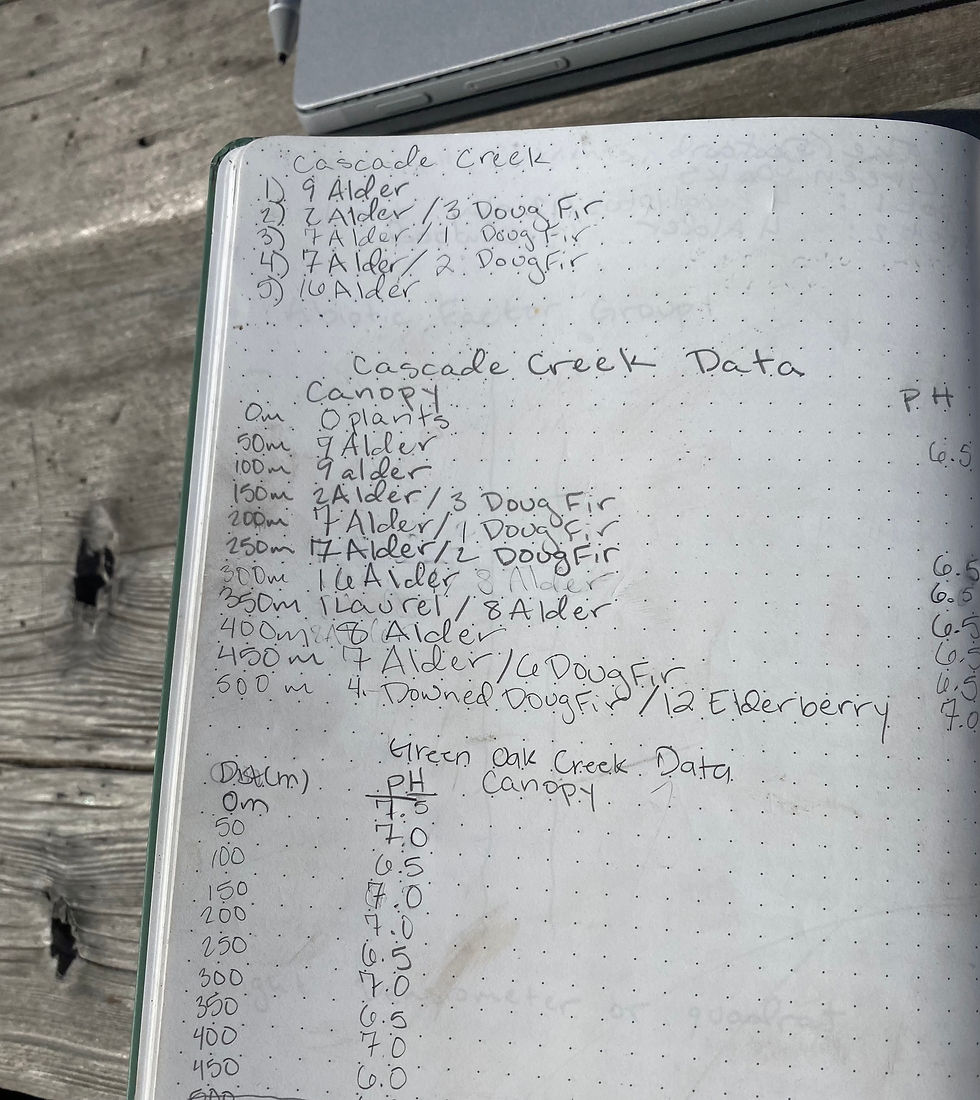 Cascade Creek
1) 9 Alder
2) 2 Alder / 3 Doug Fir
3) 7 Alder / 1 Doug Fir
4) 7 Alder / 2 DougFir
5) 16 Alder
Cascade Creek Data
Canopy PH
0m 0 plants
50m 9 Alder 6.5
100m 9 alder
150m 2 Alder / 3 Doug Fir
200m 7 Alder / 1 Doug Fir
250m 7 Alder / 2 DougFir 6.5
300m 16 Alder 8 Alder 6.5
350m 1 Laurel / 8 Alder 6.5
400m 8 Alder 6.5
450m 7 Alder / 6 DougFir 6.5
500m 4 Downed DougFir / 12 Elderberry 7.0
Green Oak Creek Data
Dist(m) PH Canopy
0m 7.5
50 7.0
100 6.5
150 7.0
200 7.0
250 6.5
300 7.0
350 6.5
400 7.0
450 6.0